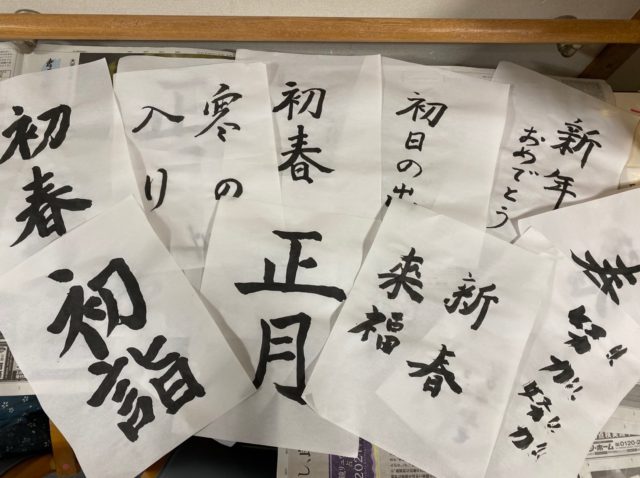 初春
寒の
入り
初春
初日の出
新年
おめでとう
初詣
正月
新春
来福
努力!!努力!!
0120-2